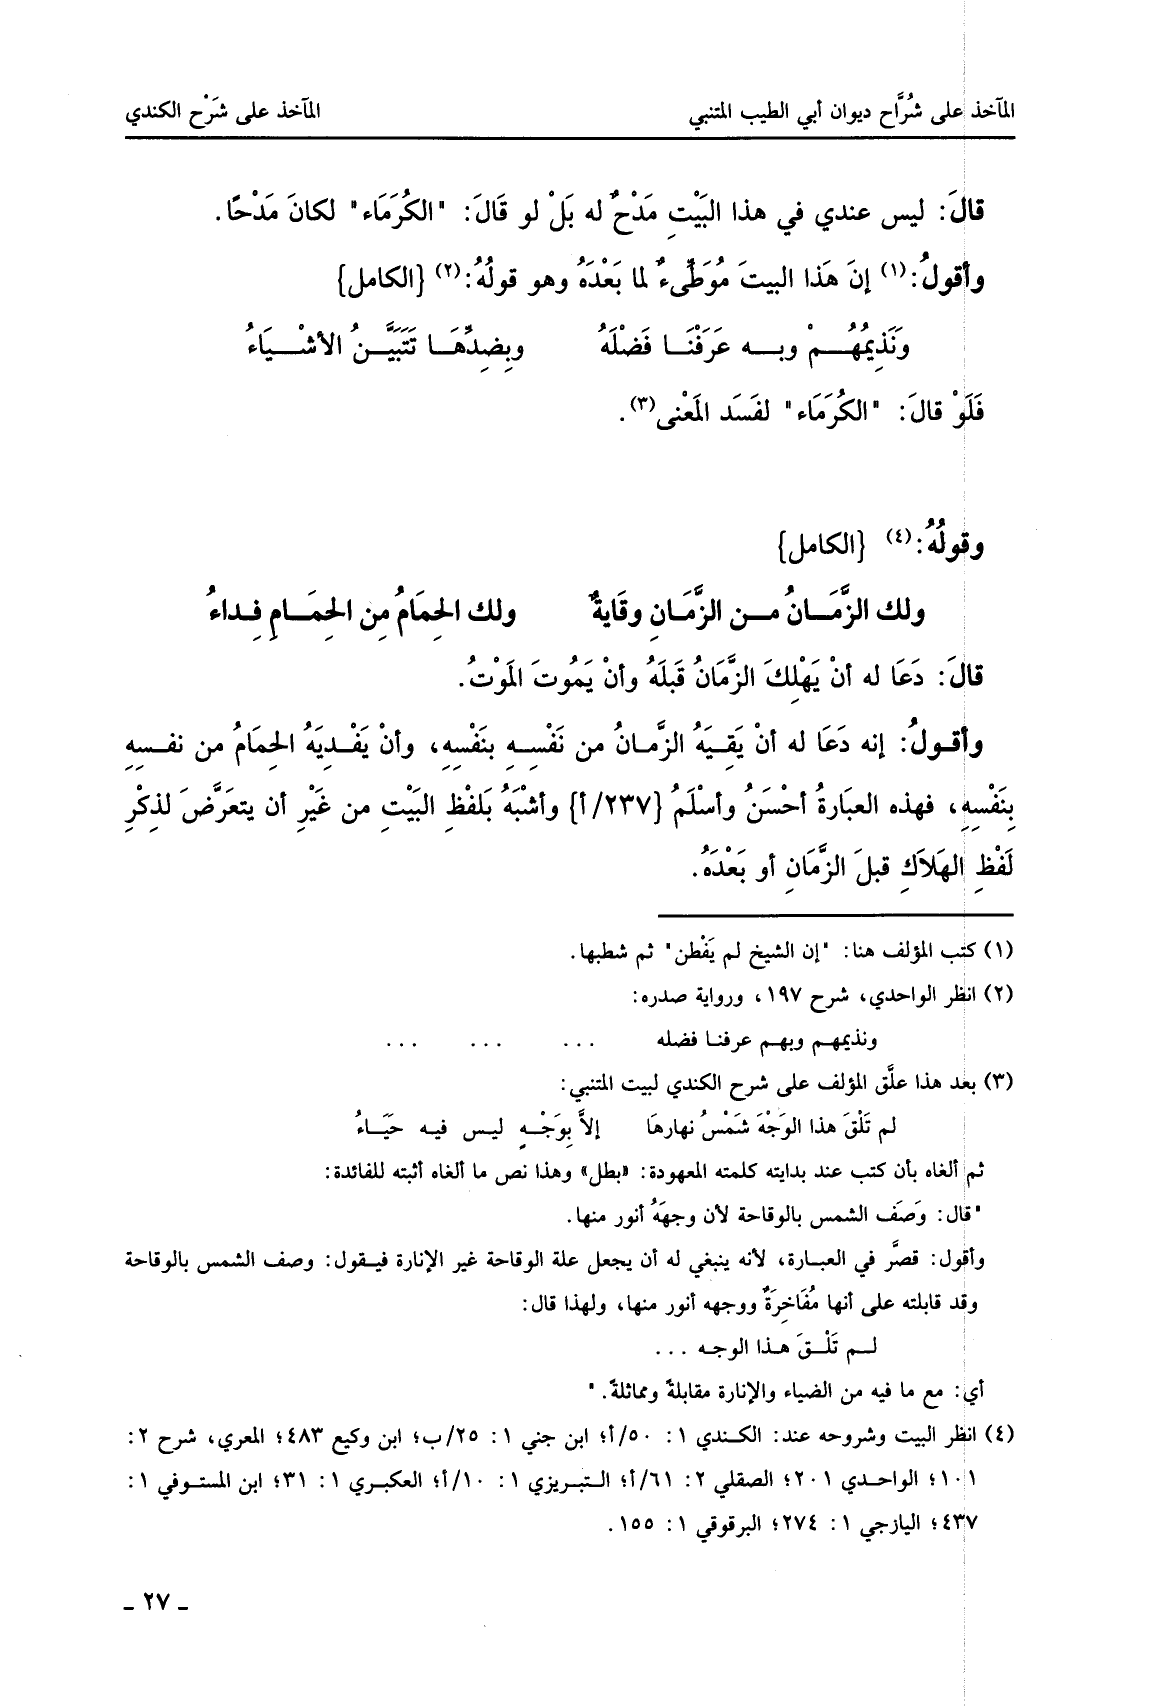 المآخذ على شُرَّاح ديوان أبي الطيب المتنبي المآخذ على شَرْح الكندي
قالَ: ليس عندي في هذا البَيْتِ مَدْحٌ له بَلْ لو قَالَ: "الكُرَمَاء" لكانَ مَدْحًا.
وأقولُ:(١) إنَ هَذا البيتَ مُوَطِّىءٌ لما بَعْدَهُ وهو قولُهُ:(٢) {الكامل}
وَنَذِيمُهُمْ وبه عَرَفْنَا فَضْلَهُ وبِضِدِّهَا تَتَبَيَّنُ الأشْيَاءُ
فَلَوْ قالَ: "الكُرَمَاء" لفَسَد المَعْنى(٣).
وقولُهُ:(٤) {الكامل}
ولك الزَّمَانُ من الزَّمَانِ وقَايةٌ ولك الحِمَامُ مِن الحِمَامِ فِداءُ
قالَ: دَعَا له أنْ يَهْلِكَ الزَّمَانُ قَبلَهُ وأنْ يَمُوتَ المَوْتُ.
وأقولُ: إنه دَعَا له أنْ يَقِيَهُ الزَّمانُ من نَفْسِهِ بنَفْسِهِ، وأنْ يَفْدِيَهُ الحِمَامُ من نفسِهِ
بِنَفْسِهِ، فهذه العبَارةُ أحْسَنُ وأسْلَمُ {٢٣٧/أ} وأشْبَهُ بَلفْظِ البَيْتِ من غَيْرِ أن يتعَرَّضَ لذِكْرِ
لَفْظِ الهَلاَكِ قبلَ الزَّمَانِ أو بَعْدَهُ.
(١) كتب المؤلف هنا: "إن الشيخ لم يَفْطن" ثم شطبها.
(٢) انظر الواحدي، شرح ١٩٧، ورواية صدره:
ونذيمهم وبهم عرفنا فضله ... ... ...
(٣) بعد هذا علَّق المؤلف على شرح الكندي لبيت المتنبي:
لم تَلْقَ هذا الوَجْهَ شَمْسُ نهارهَا إلاَّ بِوَجْهٍ ليس فيه حَيَاءُ
ثم ألغاه بأن كتب عند بدايته كلمته المعهودة: «بطل» وهذا نص ما ألغاه أثبته للفائدة:
"قال: وَصَف الشمس بالوقاحة لأن وجههُ أنور منها.
وأقول: قصَّر في العبارة، لأنه ينبغي له أن يجعل علة الوقاحة غير الإنارة فيقول: وصف الشمس بالوقاحة
وقد قابلته على أنها مُفَاخِرَةٌ ووجهه أنور منها، ولهذا قال:
لم تَلْقَ هذا الوجه ...
أي: مع ما فيه من الضياء والإنارة مقابلةً ومماثلةً."
(٤) انظر البيت وشروحه عند: الكندي ١: ٥٠/أ؛ ابن جني ١: ٢٥/ب؛ ابن وكيع ٤٨٣؛ المعري، شرح ٢:
١٠١؛ الواحدي ٢٠١؛ الصقلي ٢: ٦١/أ؛ التبريزي ١: ١٠/أ؛ العكبري ١: ٣١؛ ابن المستوفي ١:
٤٣٧؛ اليازجي ١: ٢٧٤؛ البرقوقي ١: ١٥٥.
- ٢٧ -